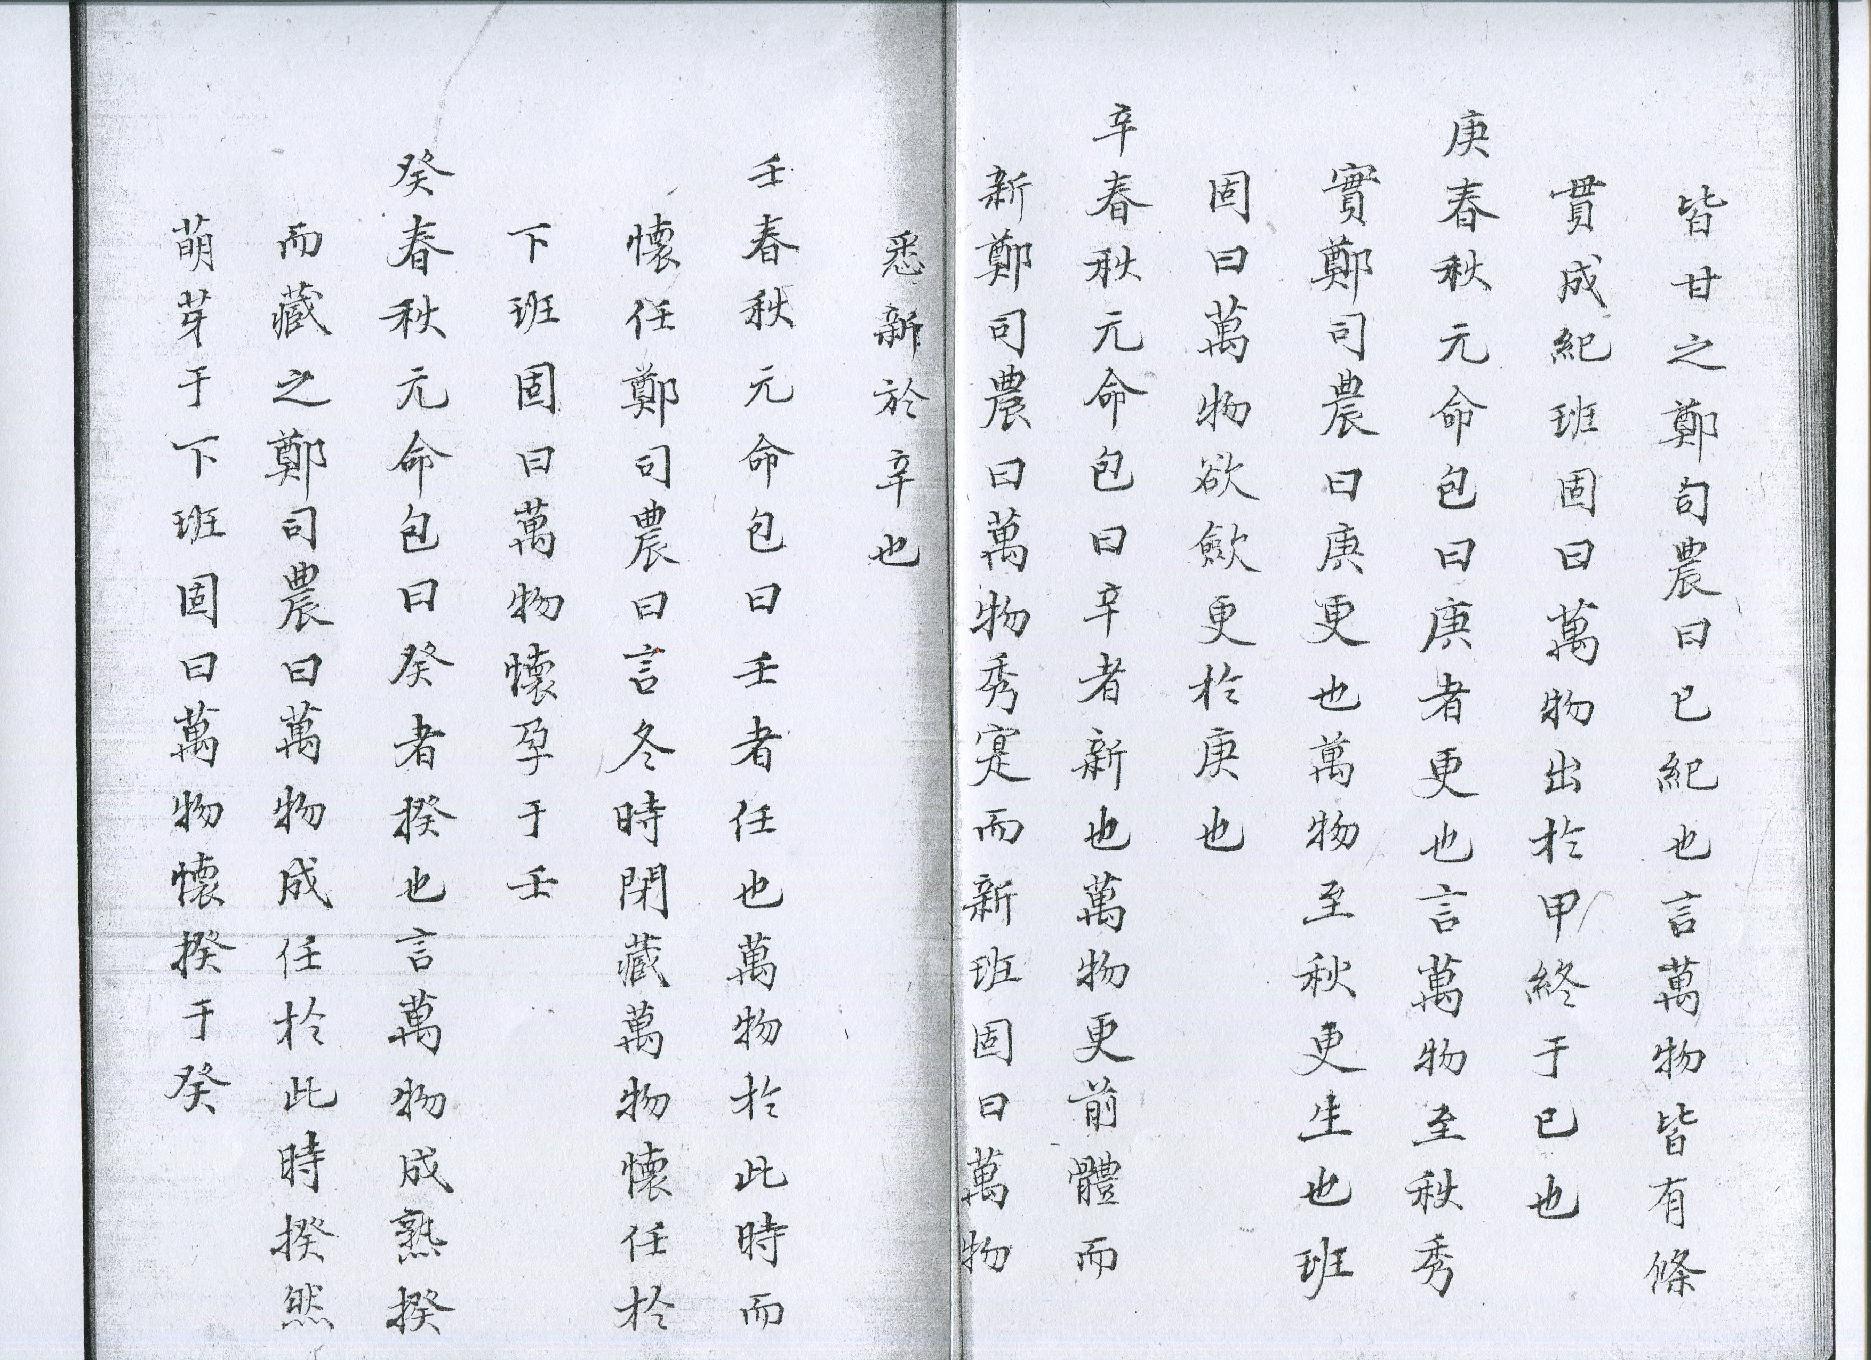 皆甘之鄭司農曰己紀也言萬物皆有條
貫成紀班固曰萬物出於甲終于己也
庚春秋元命包曰庚者更也言萬物至秋秀
實鄭司農曰庚更也萬物至秋更生也班
固曰萬物欲歛更於庚也
辛春秋元命包曰辛者新也萬物更前體而
新鄭司農曰萬物秀寔而新班固曰萬物
悉新於辛也
壬春秋元命包曰壬者任也萬物於此時而
懷任鄭司農曰言冬時閉藏萬物懷任於
下班固曰萬物懷孕于壬
癸春秋元命包曰癸者揆也言萬物成熟揆
而藏之鄭司農曰萬物成任於此時揆然
萌芽于下班固曰萬物懷揆于癸